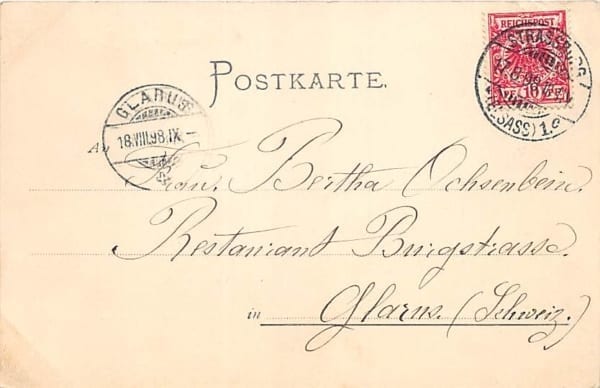 REICHSPOST
STRASSBURG
17.8.98
(ELSASS) 1.c
10 PF
POSTKARTE.
GLARUS
18.VIII.98.IX.–
An Frau. Bertha Ochsenbein.
Restaurant Burgstrasse.
in Glarus. (Schweiz.)